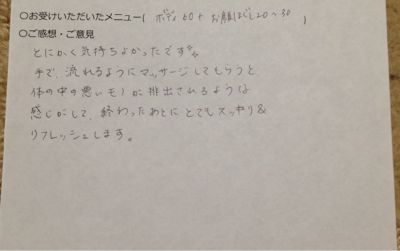 ○お受けいただいたメニュー( ボディ60+お顔ほぐし20~30 )
○ご感想・ご意見
とにかく気持ちよかったです
手で、流れるようにマッサージしてもらうと
体の中の悪いものが排出されるような
感じがして、終わったあとにとてもスッキリ&
リフレッシュします。